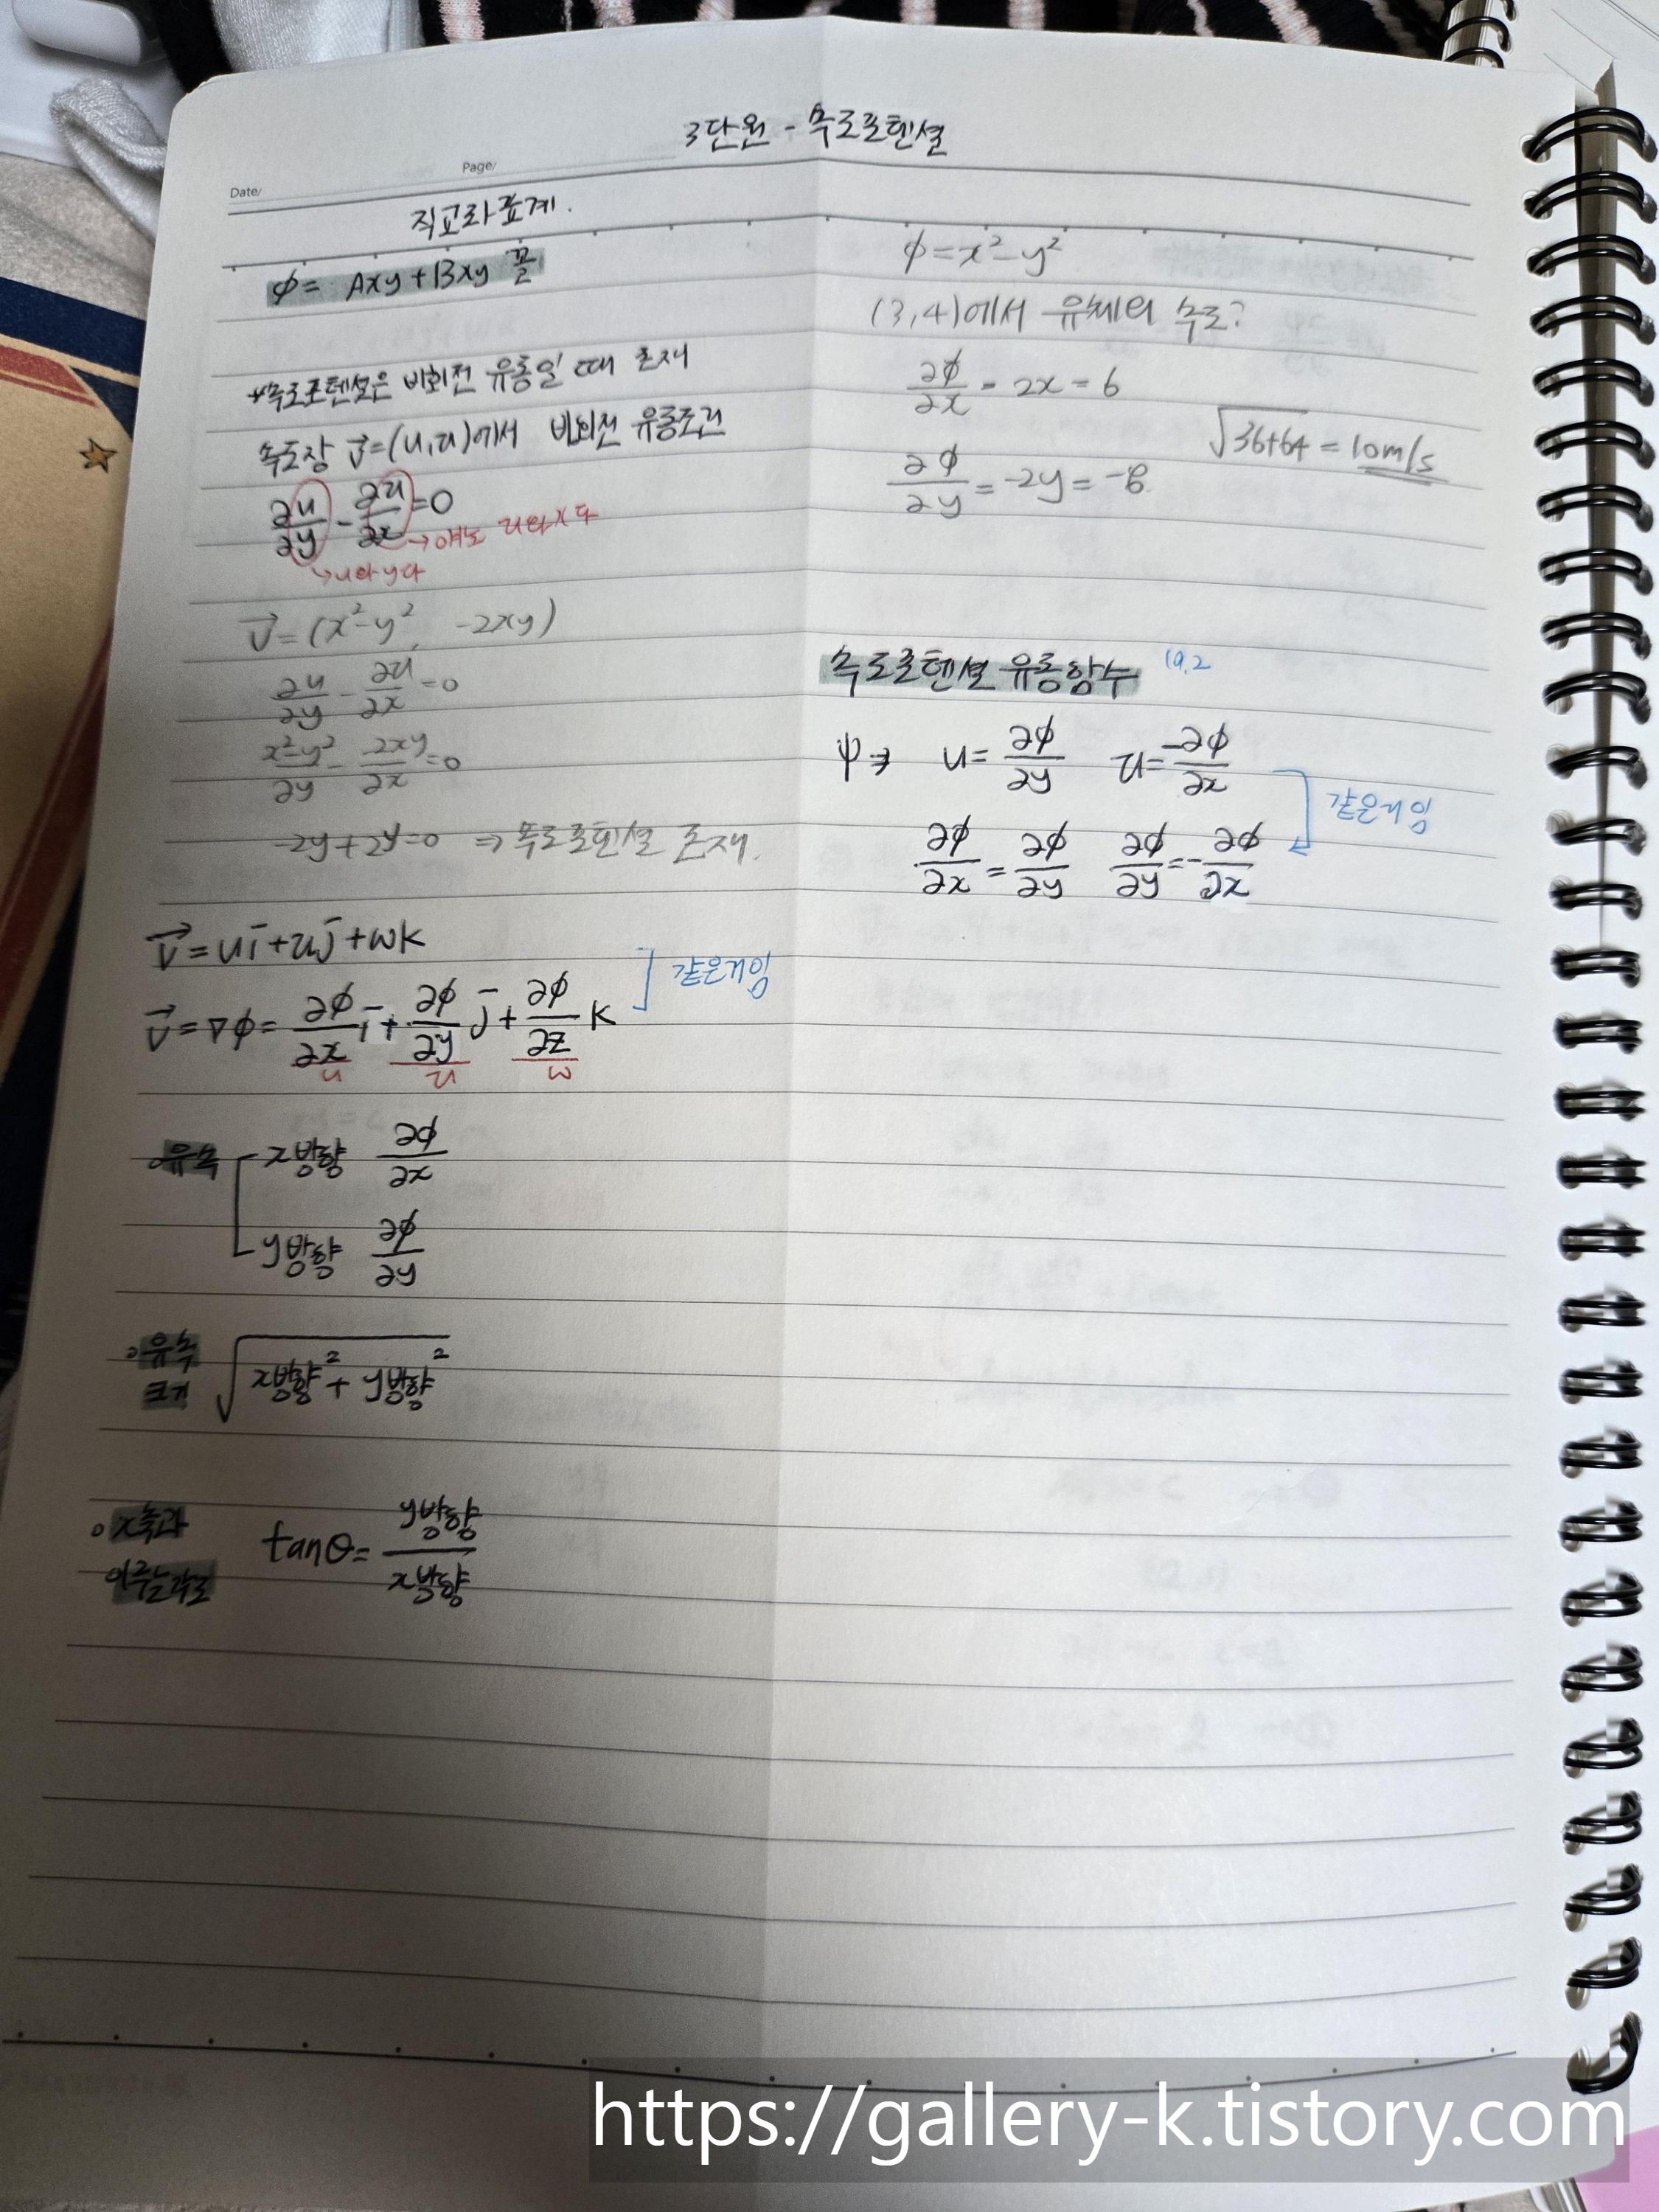 3단원 - 속도포텐셜
Date/
Page/
직교좌표계.
φ= Axy+Bxy 꼴
*속도포텐셜은 비회전 유동일 때 존재
속도장 V⃗=(u,v)에서 비회전 유동조건
∂u/∂y - ∂v/∂x = 0
→ u와 y다
→ 얘도 v와 x다
V⃗=(x²-y², -2xy)
∂u/∂y - ∂v/∂x = 0
x²-y²/∂y - -2xy/∂x = 0
-2y+2y=0 ⇒ 속도포텐셜 존재.
V⃗=ui+vj+wk
V⃗=∇φ= ∂φ/∂x i + ∂φ/∂y j + ∂φ/∂z k
u v w
같은거임
유속
x방향 ∂φ/∂x
y방향 ∂φ/∂y
유속
크기
√x방향²+y방향²
x축과
이루는각도
tanθ= y방향/x방향
φ=x²-y²
(3,4)에서 유체의 속도?
∂φ/∂x = 2x = 6
∂φ/∂y = -2y = -8
√36+64 = 10m/s
속도포텐셜 유동함수 19.2
ψ⇒ u= ∂φ/∂y v= -∂φ/∂x
∂φ/∂x = ∂φ/∂y ∂φ/∂y = -∂φ/∂x
같은거임
https://gallery-k.tistory.com